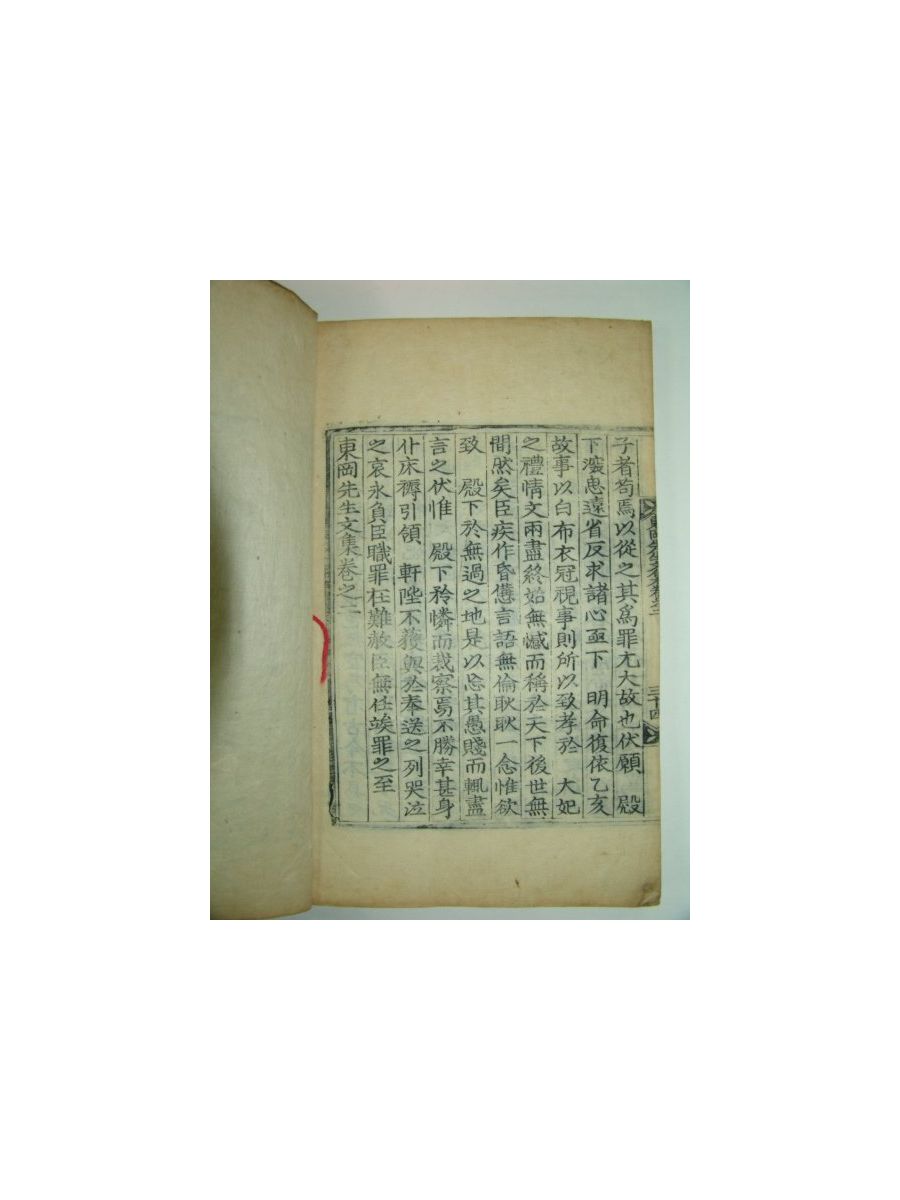 子者苟焉以從之其爲罪尤大故也伏願　殿
下深思遠省反求諸心亟下　明命復依乙亥
故事以白布衣冠視事則所以致孝於　大妃
之禮情文兩盡終始無憾而稱於天下後世無
間然矣臣疾作昏憊言語無倫耿耿一念惟欲
致　殿下於無過之地是以忘其愚賤而輒盡
言之伏惟　殿下矜憐而裁察焉不勝幸甚身
仆床褥引領　軒陛不獲與於奉送之列哭泣
之哀永負臣職罪在難赦臣無任竢罪之至
東岡先生文集卷之二
三十四